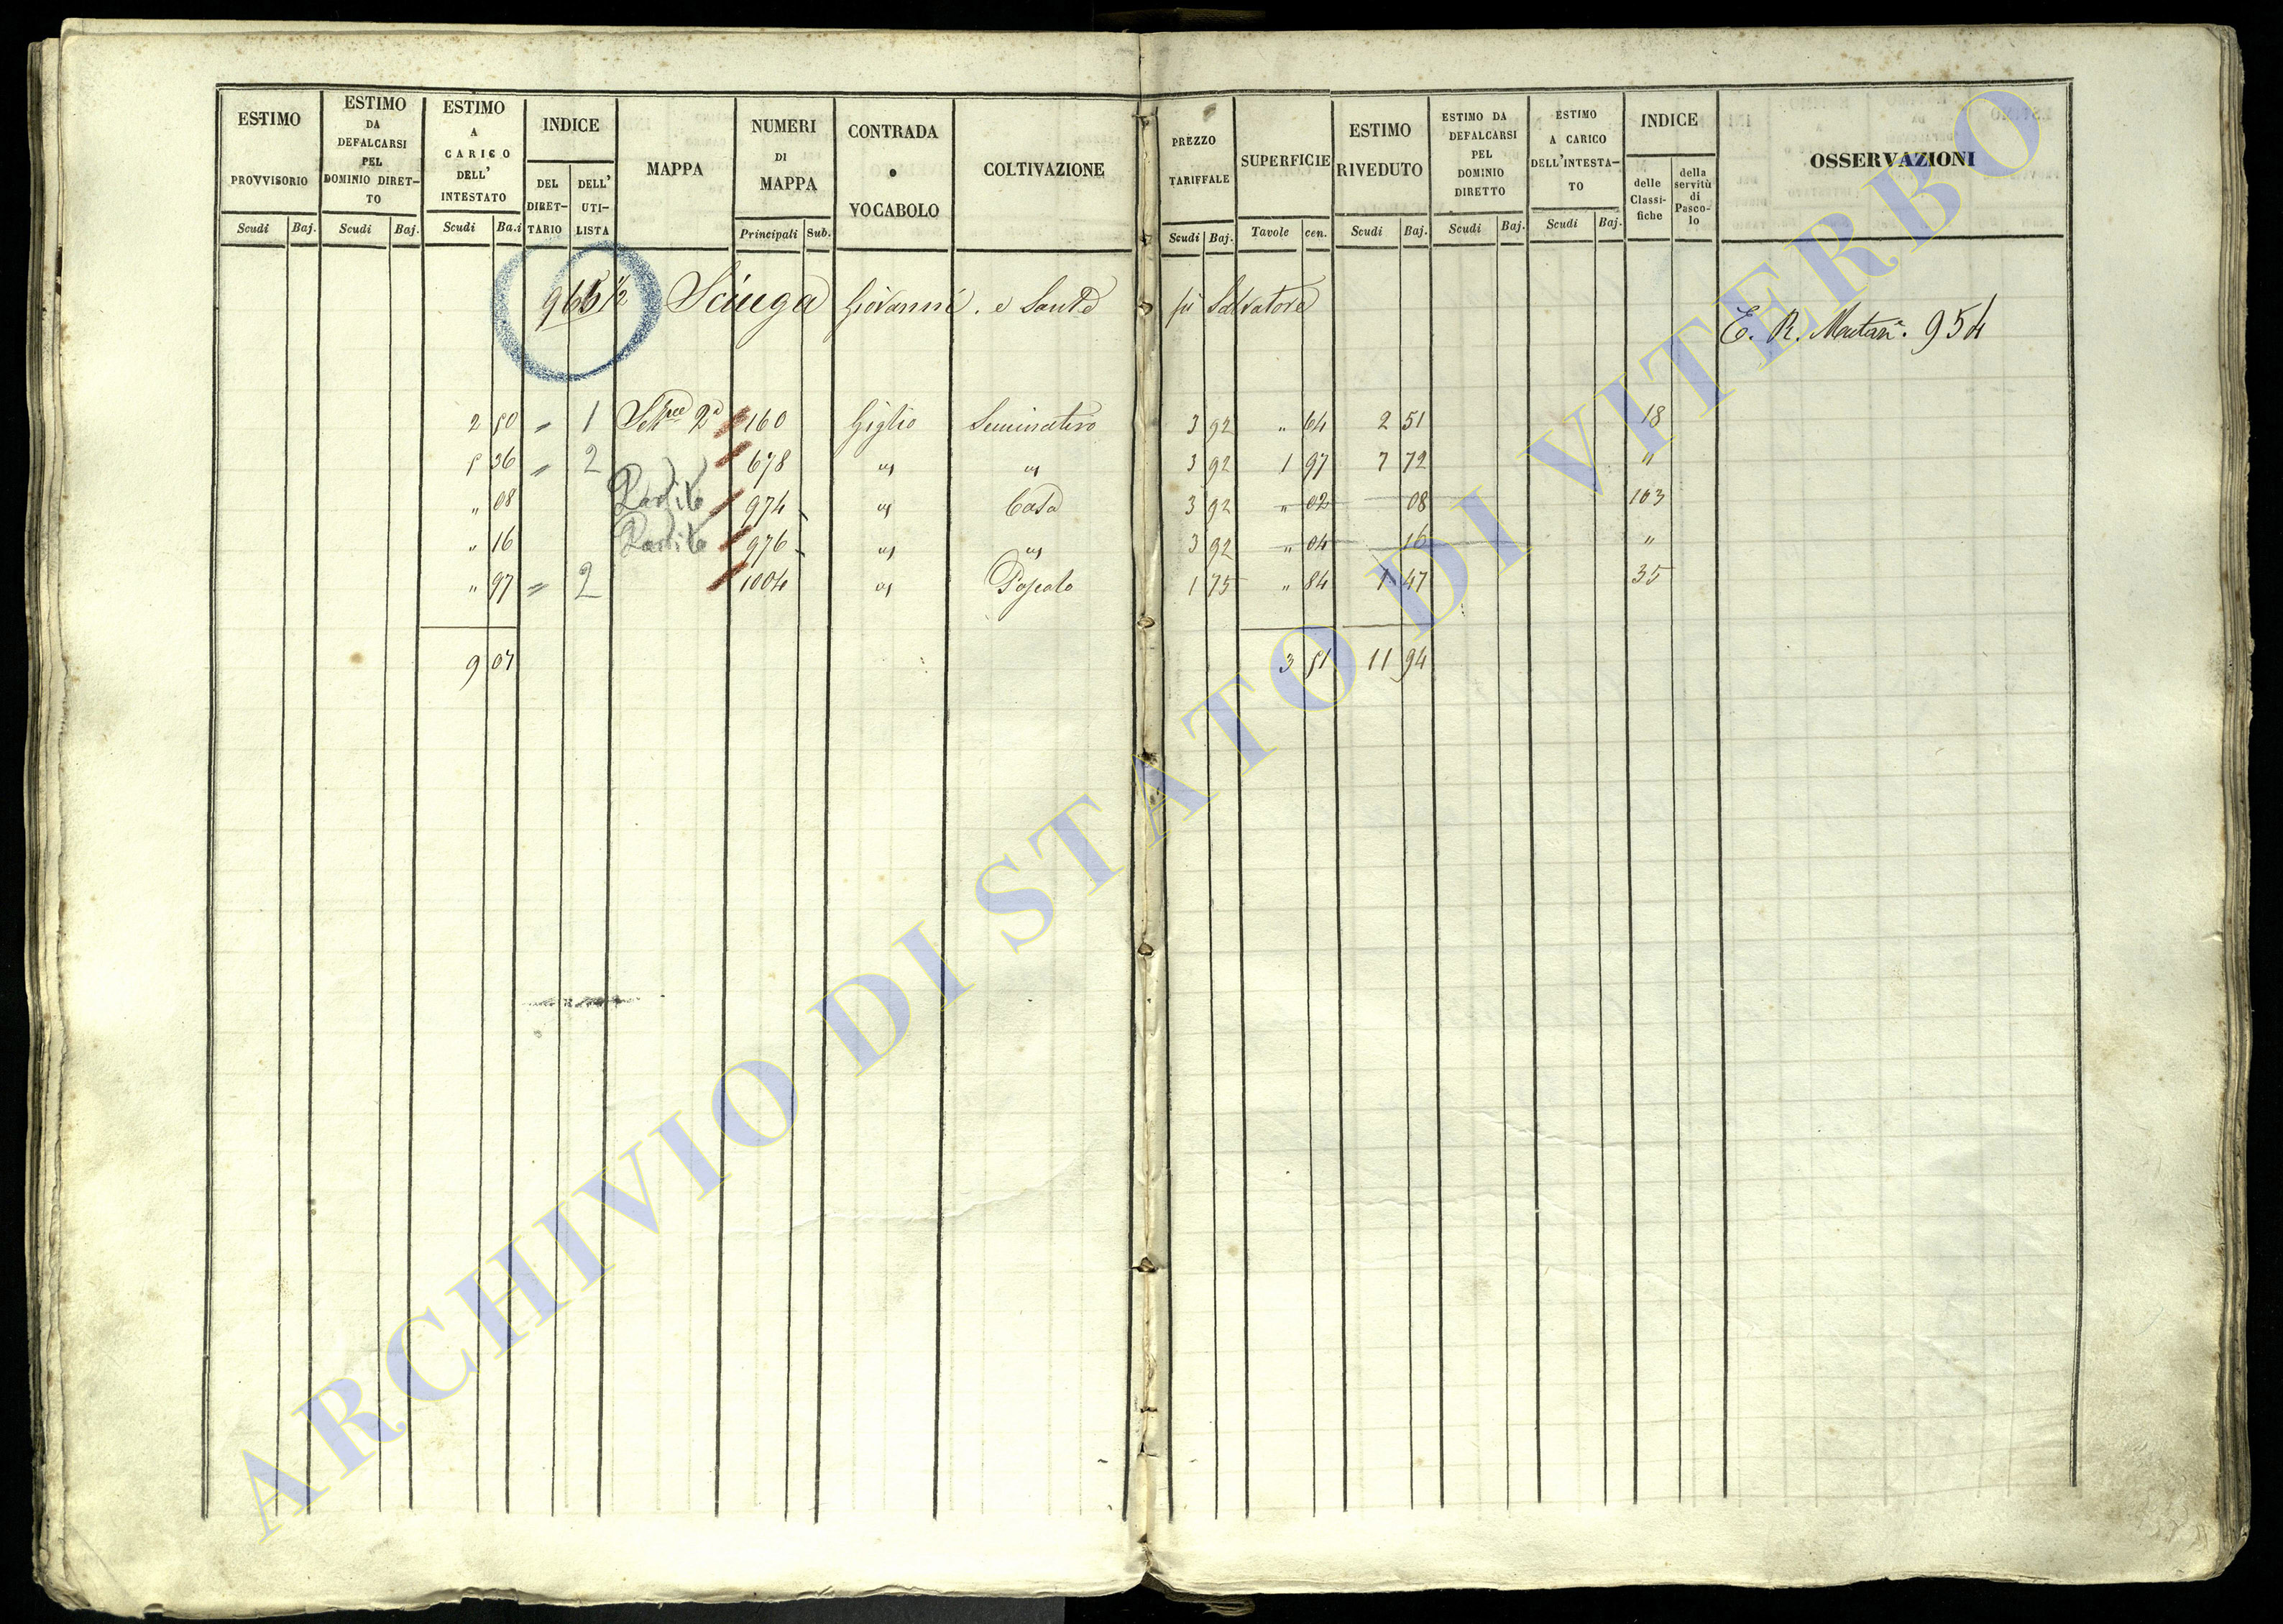 ESTIMO PROVVISORIO
Scudi Baj.
ESTIMO DA DEFALCARSI PEL DOMINIO DIRET-TO
Scudi Baj.
ESTIMO A CARICO DELL' INTESTATO
Scudi Ba.i
INDICE
DEL DIRET-TARIO
DELL' UTI-LISTA
MAPPA
NUMERI DI MAPPA
Principali Sub.
CONTRADA o VOCABOLO
COLTIVAZIONE
PREZZO TARIFFALE
Scudi Baj.
SUPERFICIE
Tavole cen.
ESTIMO RIVEDUTO
Scudi Baj.
ESTIMO DA DEFALCARSI PEL DOMINIO DIRETTO
Scudi Baj.
ESTIMO A CARICO DELL'INTESTA-TO
Scudi Baj.
INDICE
delle Classi-fiche
della servitù di Pasco-lo
OSSERVAZIONI
966 1/2 Sciuga Giovanni. e Sante fù Salvatore
E. R. 954
2 50 = 1 2a 160 Giglio Seminativo 3 92 " 64 2 51 18
5 36 = 2 678 " " 3 92 1 97 7 72 "
" 08 974 " Casa 3 92 " 02 08 103
" 16 976 " " 3 92 " 04 16 "
" 97 = 2 1004 " Pascolo 1 75 " 84 1 47 35
9 07 3 51 11 94
ARCHIVIO DI STATO DI VITERBO